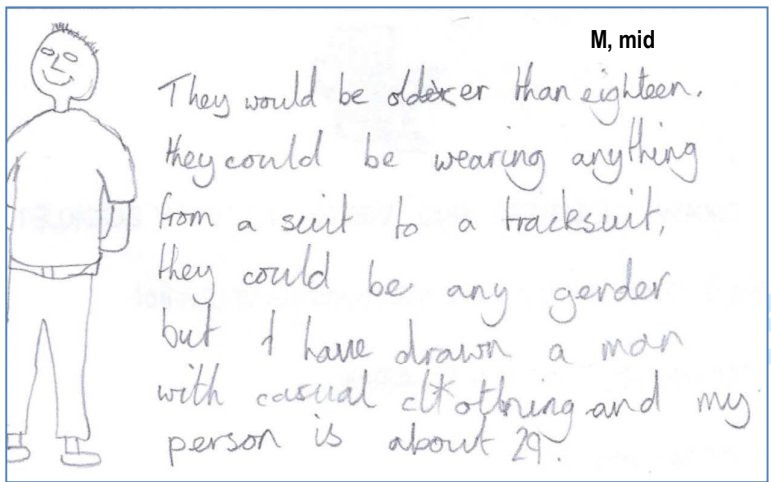 M, mid
They would be older than eighteen,
they could be wearing anything
from a suit to a tracksuit,
they could be any gender
but I have drawn a man
with casual clothing and my
person is about 29.